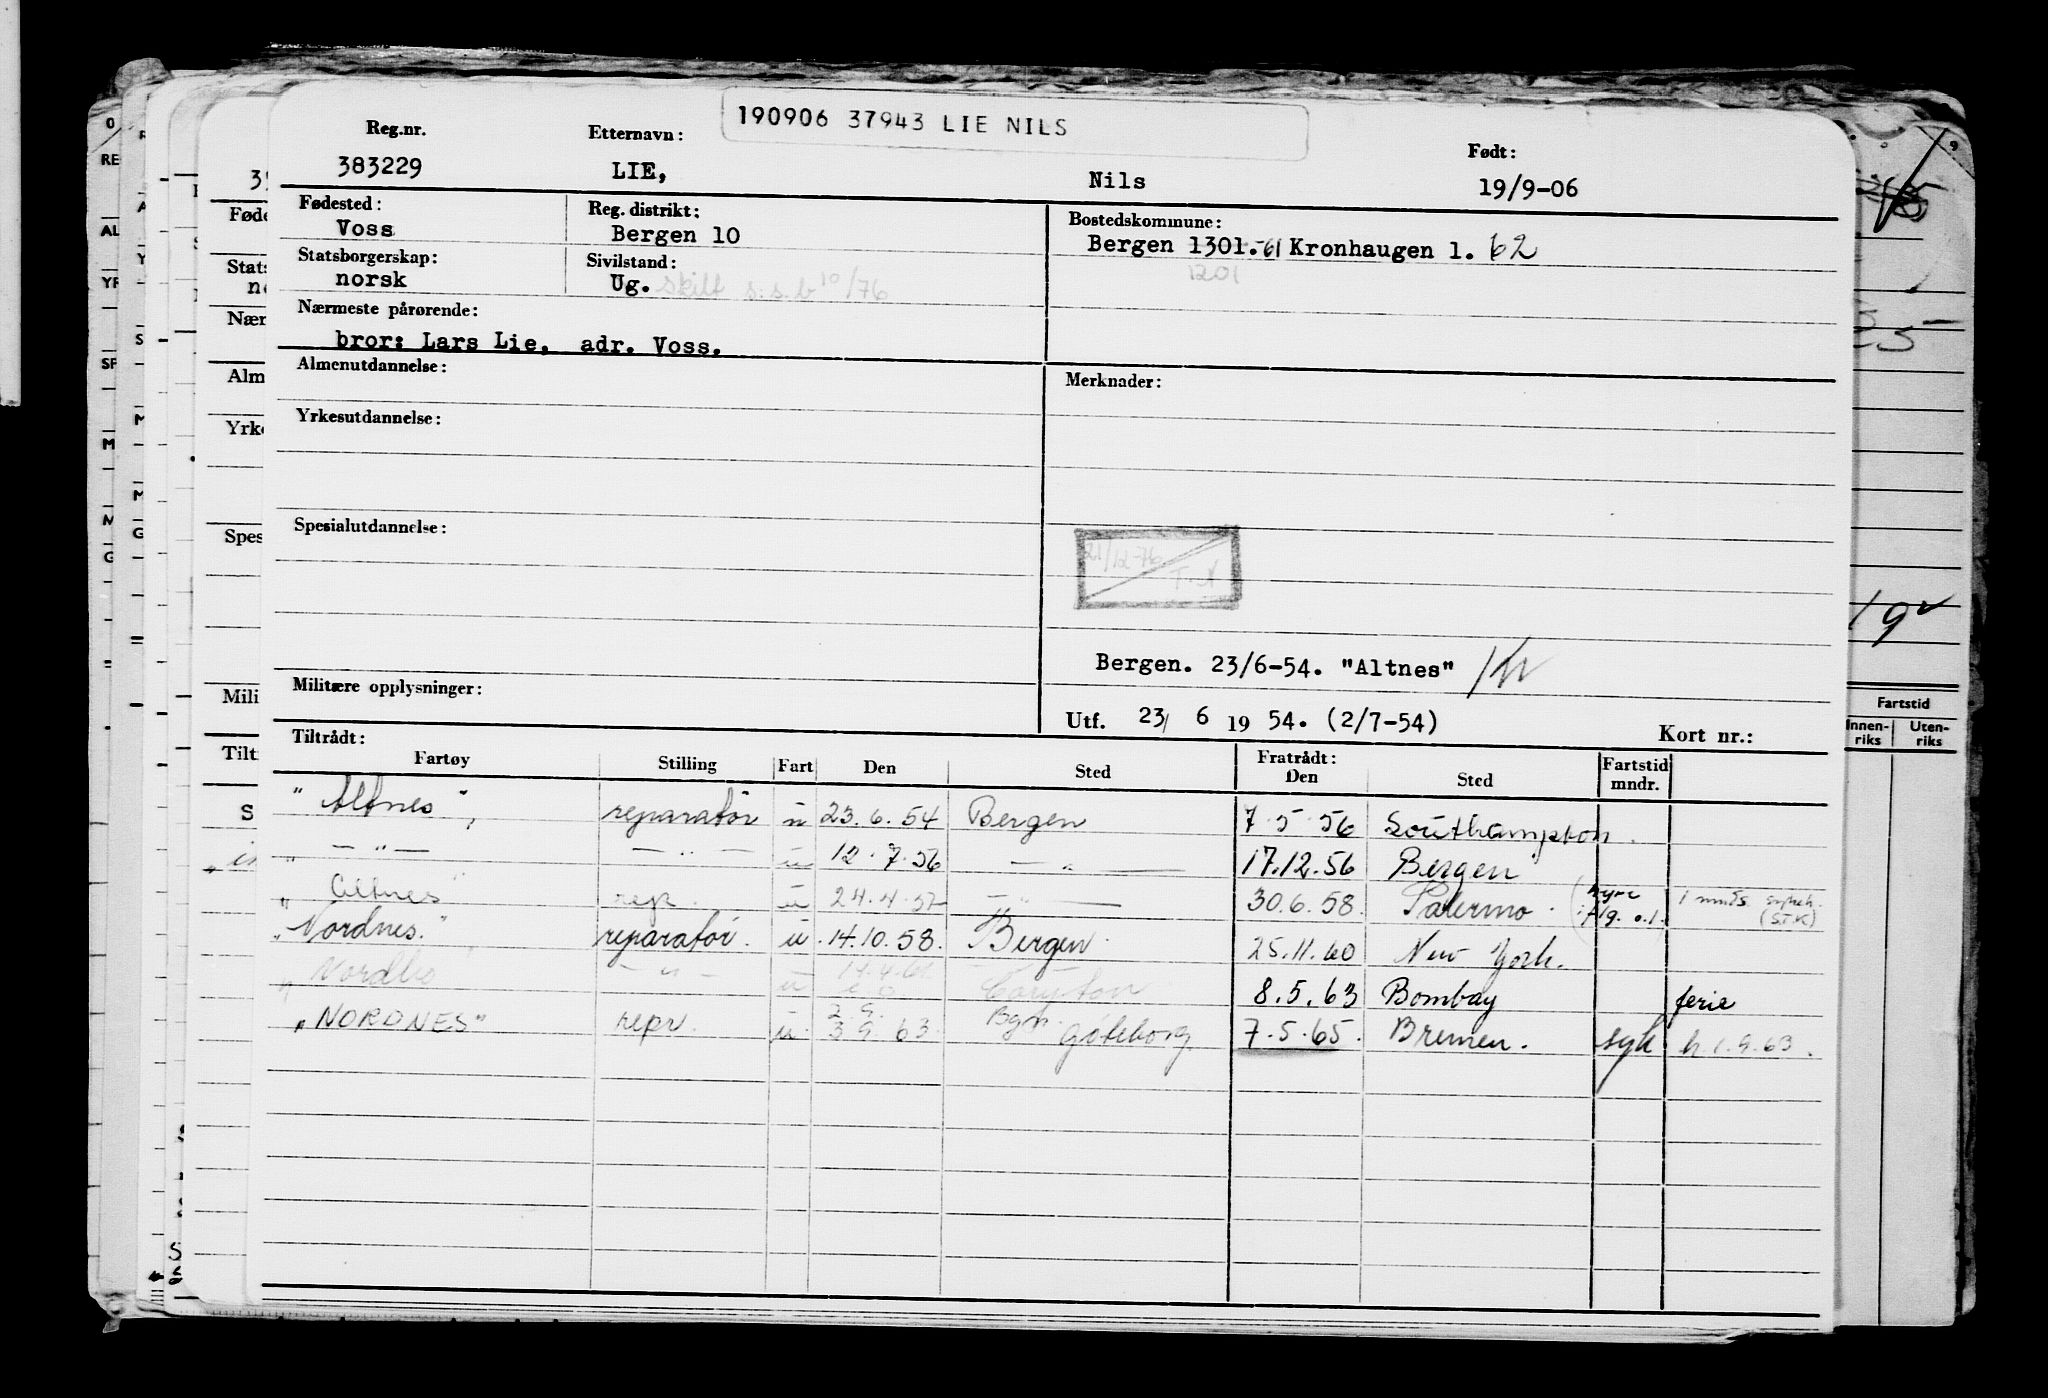 190906 37943 LIE NILS
Reg.nr. Etternavn: Født:
383229 LIE, Nils 19/9-06
Fødested: Reg. distrikt: Bostedskommune:
Voss Bergen 10 Bergen 1301.-61 Kronhaugen 1. 62
1201
Statsborgerskap: Sivilstand:
norsk Ug. Skilt s.s.b 10/76
Nærmeste pårørende:
bror: Lars Lie, adr. Voss.
Almenutdannelse: Merknader:
Yrkesutdannelse:
Spesialutdannelse:
21/12-76
T.N
Bergen. 23/6-54. "Altnes"
Militære opplysninger:
Utf. 23/ 6 19 54. (2/7-54) Kort nr.:
Tiltrådt: Fratrådt: Fartstid
Fartøy Stilling Fart Den Sted Den Sted mndr.
"Altnes", reparatør u 23.6.54 Bergen 7.5.56 Southampton.
" — " — — " — u 12.7.56 — " — 17.12.56 Bergen
"Altnes" rep. u 24.4.57 — " — 30.6.58. Palermo. 1 mnds (STK)
"Nordnes." reparatør. u. 14.10.58. Bergen. 25.11.60 New York.
— " — u 8.5.63 Bombay ferie
"NORDNES" repr. u. 2.9. 3.9.63. Bgn. Göteborg. 7.5.65. Bremen. syk h.1.9.63.
Fartstid
Innen-riks Uten-riks